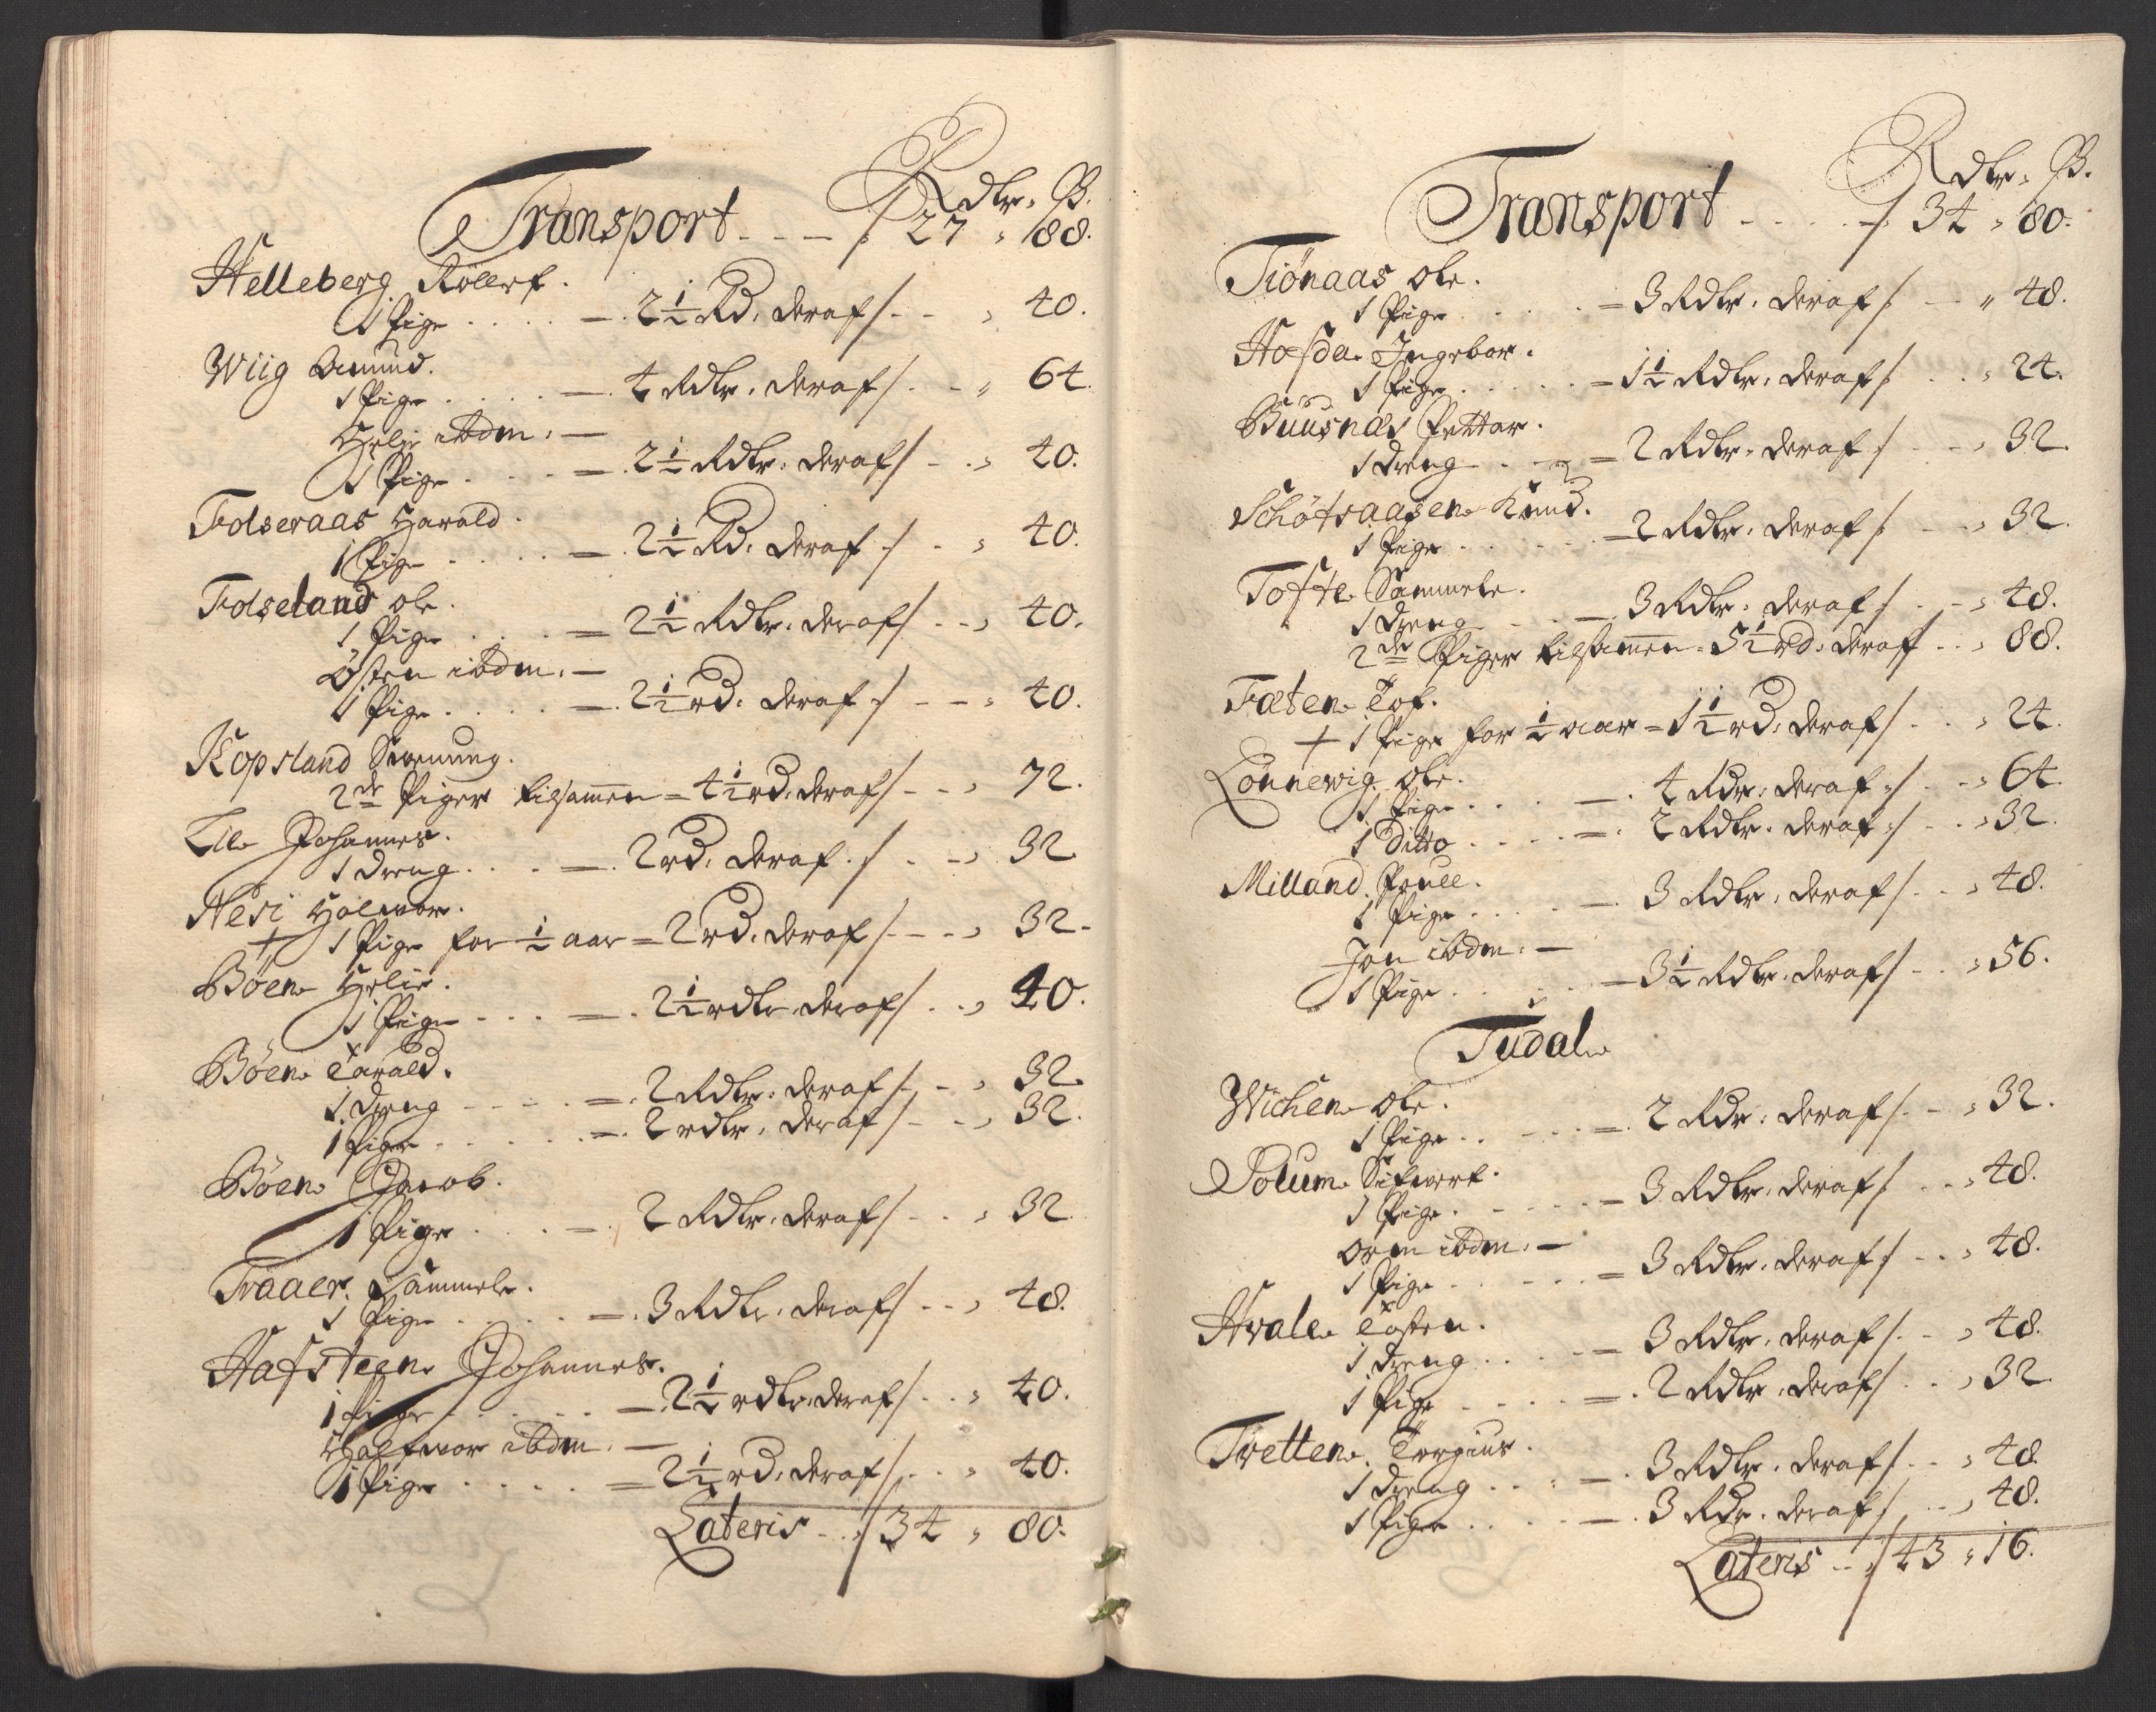 Rdlr. ß.
Transport - - - /: 27 " 88.
Helleberg Rollef.
1 Pige . . . . — 2½ Rd. deraf /. - - " 40.
Wiig Amund.
1 Pige . . . . — 4 Rdlr. deraf /. - " 64.
Helje ibdm. —
1 Pige . . . . — 2½ Rdlr. deraf /. - " 40.
Folseraas Harald.
1 Pige . . . . — 2½ Rd. deraf /. - " 40.
Folseland Ole.
1 Pige . . . . = 2½ Rdlr. deraf /. - " 40.
Østen ibdm. —
1 Pige . . . . — 2½ rd. deraf /. - - " 40.
Kopsland
2de Piger tilsamen = 4½ rd. deraf /. - - " 72.
Lie Johannes.
1 Dreng . . . — 2 rd. deraf /. - - " 32
Nesi Halvor.
+ 1 Pige for ½ aar = 2 rd. deraf /. - - - " 32.
Böen Helje.
1 Pige - - - = 2½ rdlr deraf /. . " 40.
Böen Tarald.
1 Dreng - - - - = 2 Rdlr. deraf /. - " 32.
1 Pige . . . . . = 2 rdlr. deraf /. - " 32.
Böen Jacob.
1 Pige . . . — 2 Rdlr. deraf /. - . " 32.
Traaer. Sammele.
1 Pige . . . . = 3 Rdlr. deraf /. - - " 48.
Hafsteen Johannes.
1 Pige . . . . . — 2½ rdlr. deraf /. . . " 40.
Halfwor ibdm. —
1 Pige . . . . . = 2½ rd. deraf /. . . " 40.
Lateris - . /: 34 " 80.
Rdlr. ß.
Transport - . . . . /: 34 " 80.
Tiönaas Ole.
1 Pige . . . . = 3 Rdlr. deraf /: - " 48.
Hofda Ingebor.
1 Pige . . . . . = 1½ Rdlr. deraf /: . . " 24.
Buusnæs Pettar.
1 Dreng . . = 2 Rdlr. deraf /: - - " 32.
Schötraasen Knud.
1 Pige . . . . . = 2 Rdlr. deraf /: - " 32.
Tofte Sammele.
1 Dreng - . . — 3 Rdlr. deraf /: . - " 48.
2de Piger tilsamen = 5½ rd. deraf . . " 88.
Fæten Tof.
+ 1 Pige for ½ aar = 1½ rd. deraf /. . . " 24.
Lönnewig Ole.
1 Pige . . . — 4 Rdr. deraf /. . . " 64.
1 Ditto . . . . = . 2 Rdlr. deraf /. - . " 32.
Milland. Pouel.
1 Pige . . . . — 3 Rdlr. deraf /. . . " 48.
Jon ibdm. —
1 Pige . . . . — 3½ Rdlr. deraf /. . . " 56.
Tudal
Wichen Ole.
1 Pige . . - - - = 2 Rdr. deraf /. - " 32.
Bolum Sifwert.
1 Pige . - - - - = 3 Rdlr. deraf /. . . " 48.
Orm ibdm. —
1 Pige . . - - . = 3 Rdlr. deraf /. - . " 48.
Hvale Tosten.
1 Dreng . . . . — 3 Rdlr. deraf /. - " 48.
1 Pige - - - . = 2 Rdlr. deraf /. . . " 32
Tvetten. Torgius.
1 Dreng . . . — 3 Rdlr. deraf /. . . " 48.
1 Pige . . . . — 3 Rdr. deraf /. . . " 48.
Lateris - . /: 43 " 16.